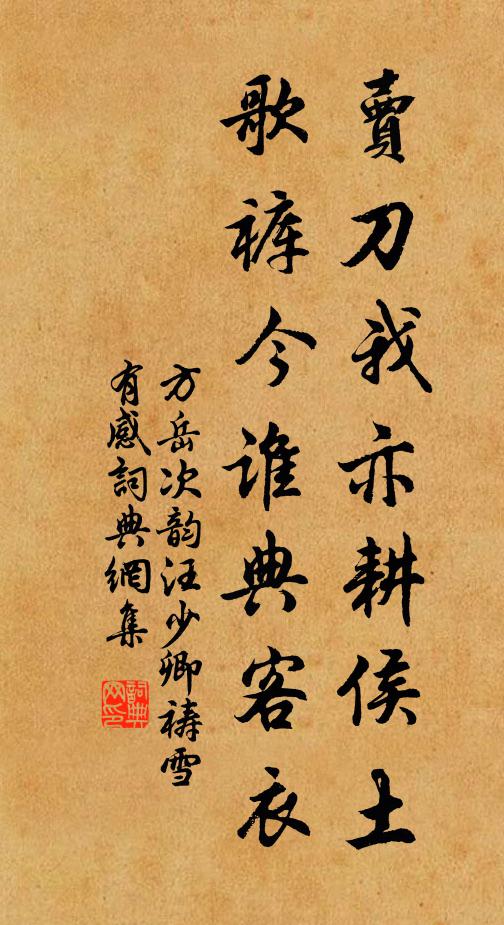 賣刀我亦耕侯土
歌裤今谁典客衣
方岳次韵汪少卿祷雪
有感詞典網集
詞典网印